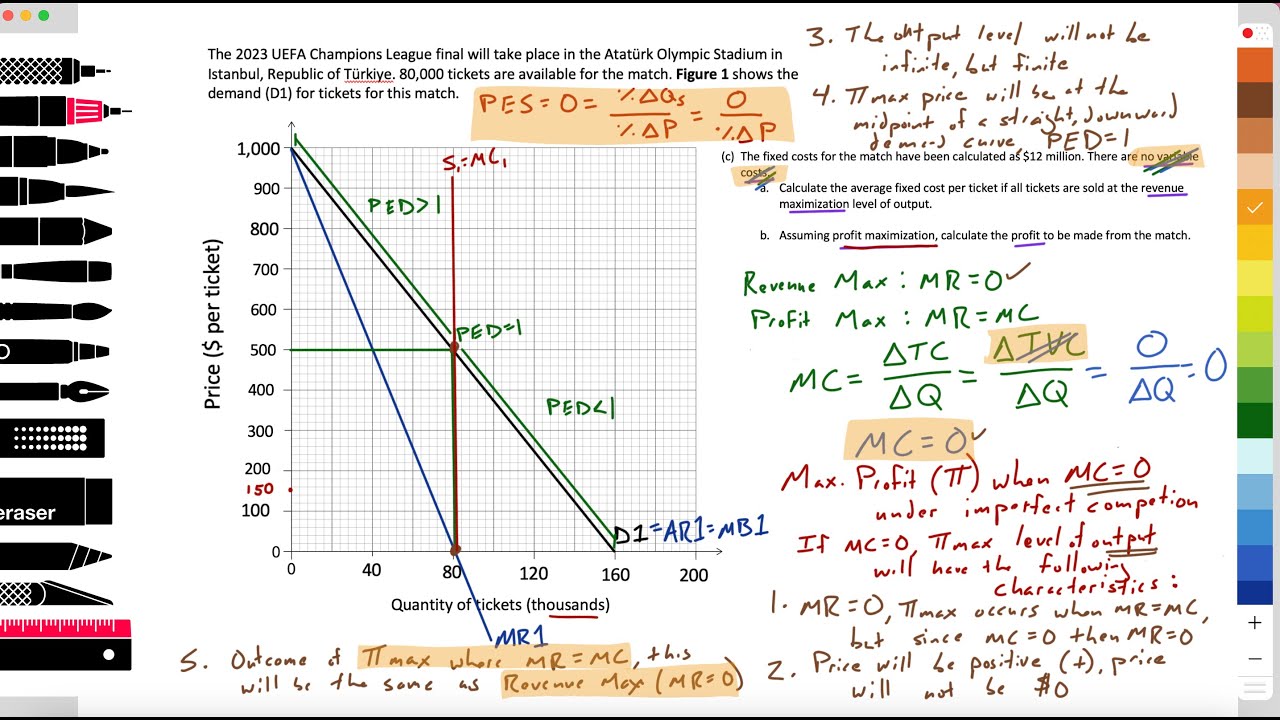 The 2023 UEFA Champions League final will take place in the Atatürk Olympic Stadium in
Istanbul, Republic of Türkiye. 80,000 tickets are available for the match. Figure 1 shows the
demand (D1) for tickets for this match.
PES = 0 = %ΔQs / %ΔP = 0 / %ΔP
3. The output level will not be
infinite, but finite
4. Πmax price will be at the
midpoint of a straight, downward
demand curve, PED=1
(c) The fixed costs for the match have been calculated as $12 million. There are no variable
costs.
a. Calculate the average fixed cost per ticket if all tickets are sold at the revenue
maximization level of output.
b. Assuming profit maximization, calculate the profit to be made from the match.
Revenue Max : MR = 0 ✓
Profit Max : MR = MC
MC = ΔTC / ΔQ = ΔTVC / ΔQ = 0 / ΔQ = 0
MC = 0 ✓
Max. Profit (Π) when MC = 0
under imperfect competion
If MC=0, Πmax level of output
will have the following
characteristics :
1. MR = 0, Πmax occurs when MR = MC,
but since MC = 0 then MR = 0
2. Price will be positive (+), price
will not be $0
Price ($ per ticket)
1,000
900
800
700
600
500
400
300
200
150
100
0
S1=MC1
PED>1
PED=1
PED<1
D1 = AR1 = MB1
0 40 80 120 160 200
Quantity of tickets (thousands)
MR1
5. Outcome of Πmax where MR = MC, this
will be the same as Revenue Max (MR = 0)
eraser